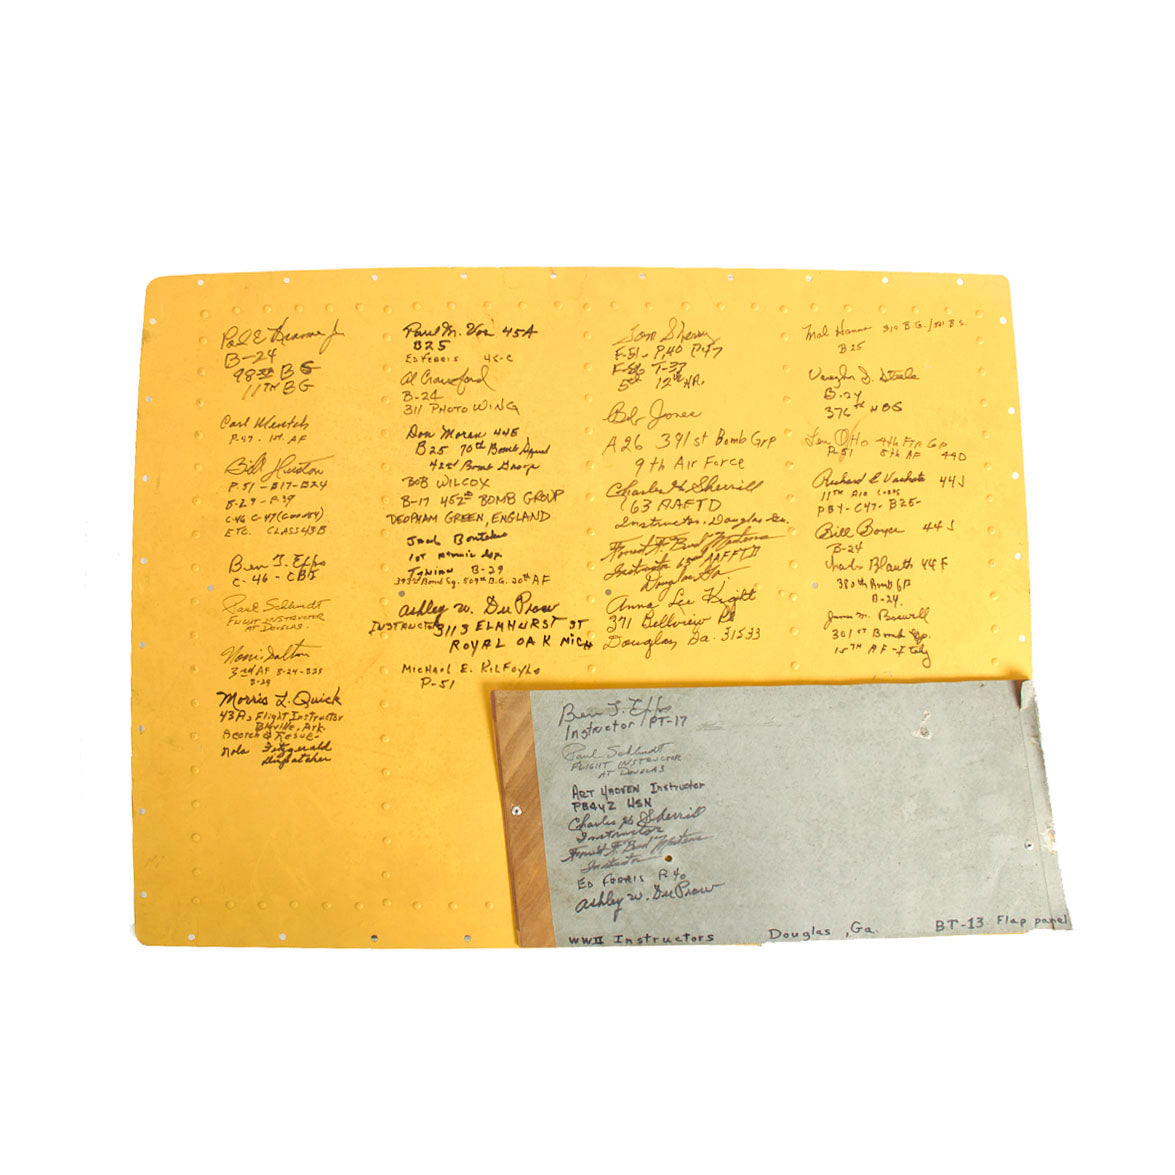 B-24
98th BG
11TH BG
Carl
P-47 - 1st. AF
Bill Huston
P-51 - B17 - B24
B-29 - P-39
C-46 C-47 (Gooney)
ETC. CLASS 43B
Ben T. Epps
C-46 - CBI
Paul Schlundt
FLIGHT INSTRUCTOR
AT DOUGLAS.
Norris Dalton
3rd AF B-24-B25
B-29
Morris L. Quick
43A, Flight Instructor
Ark.
Nola Fitzgerald
dispatcher
Paul M. 45A
B25
ED FERRIS 45-C
Al Crawford
B-24
311 PHOTO WING
Don Moran 44E
B25 70th Bomb Squad
42nd Bomb Group
BOB WILCOX
B-17 452nd BOMB GROUP
DEOPHAM GREEN, ENGLAND
Jack
TINIAN B-29
393rd Bomb Sq. 509th B.G. 20th AF
Ashley W. DuProw
INSTRUCTOR
3113 ELMHURST ST
ROYAL OAK MICH
MICHAEL E. KILFOYLE
P-51
Tom
F-51 - P.40 P-47
F-86 T-33
5th 12th AF.
Bob Jones
A26 391st Bomb Grp
9th Air Force
Charles H. Sherrill
63 AAFTD
Instructor, Douglas Ga.
Forrest F. "Bud" Martens
Instructor 63rd AAFFTD
Douglas Ga.
Anna Lee Kight
371 Bellview Rd
Douglas, Ga. 31533
Mal Hanna 310 B.G./381 B.S.
B25
Vaughn D. Steele
B-24
376th HBG
Len Otto 4th Ftr Gp
P-51 8th AF 44D
Richard E. 44J
11TH AIR CORPS
PBY - C47 - B25-
Bill Boyce 44J
B-24
Charles Blauth 44F
380th Bomb GP
B-24.
James M. Boswell
301st Bomb Gp.
15TH AF - Italy
Ben T. Epps
Instructor PT-17
Paul Schlundt
FLIGHT INSTRUCTOR
AT DOUGLAS
ART Instructor
PB4Y2 USN
Charles H Sherrill
Instructor
Forrest F. "Bud" Martens
Instructor
ED FERRIS P40
Ashley W. DuProw
WWII Instructors Douglas, Ga. BT-13 Flap panel